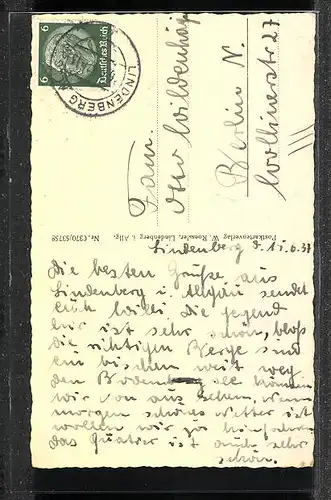 6 Deutsches Reich 6
LINDENBERG
Fam.
Otto Wildenhayn
Berlin N.
Wollinerstr 27
Postkartenverlag W. Roessler, Lindenberg i. Allg. Nr. 1370/53758
Lindenberg d. 15.6.37
Die besten Grüße aus
Lindenberg i. Allgäu sendet
Euch Willi die Gegend
hir ist sehr schön, blos
die richtigen Berge sind
ein bischen weit weg
den Bodensee können
wir von aus sehen, wenn
morgen schönes Wetter ist
wollen wir zu hinfahren
das Quatier ist auch sehr
schön.